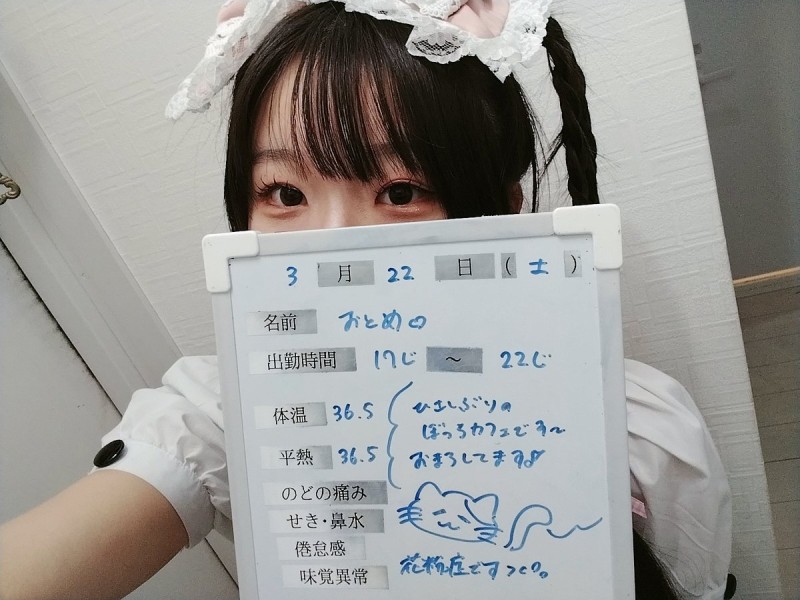 3月22日(土)
名前 おとめ
出勤時間 17じ ～ 22じ
体温 36.5
平熱 36.5
ひさしぶりの
ぼっちカフェです〜
おまちしてます♪
のどの痛み
せき・鼻水
倦怠感
味覚異常
花粉症です